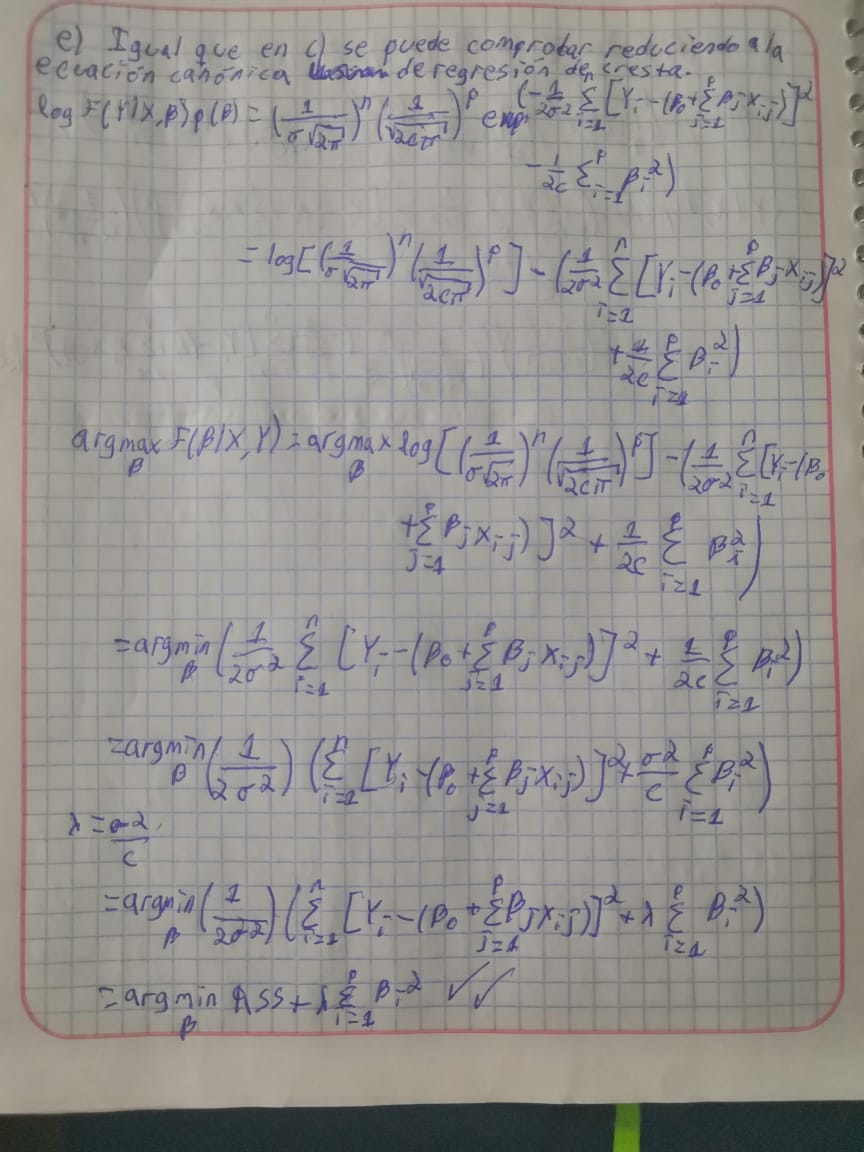 e) Igual que en c) se puede comprobar reduciendo a la
ecuación canónica de regresión de cresta.
log F(Y|X,β)p(β) = (1/(σ√2π))^n (1/√2cπ)^p exp(-1/2σ2 Σ_{i=1}^n [Yi-(β0+Σ_{j=1}^p βj Xij)]^2
-1/2c Σ_{i=1}^p βi^2)
= log[(1/(σ√2π))^n (1/√2cπ)^p] - (1/2σ2 Σ_{i=1}^n [Yi-(β0+Σ_{j=1}^p βj Xij)]^2
+1/2c Σ_{i=1}^p βi^2)
argmax_β F(β|X,Y) = argmax_β log[(1/(σ√2π))^n (1/√2cπ)^p] - (1/2σ2 Σ_{i=1}^n [Yi-(β0
+Σ_{j=1}^p βj Xij)]^2 + 1/2c Σ_{i=1}^p βi^2)
=argmin_β (1/2σ2 Σ_{i=1}^n [Yi-(β0+Σ_{j=1}^p βj Xij)]^2 + 1/2c Σ_{i=1}^p βi^2)
=argmin_β (1/2σ2) (Σ_{i=1}^n [Yi-(β0+Σ_{j=1}^p βj Xij)]^2 + σ2/c Σ_{i=1}^p βi^2)
λ = σ2/c
=argmin_β (1/2σ2) (Σ_{i=1}^n [Yi-(β0+Σ_{j=1}^p βj Xij)]^2 + λ Σ_{i=1}^p βi^2)
=argmin_β RSS + λ Σ_{i=1}^p βi^2 ✓✓